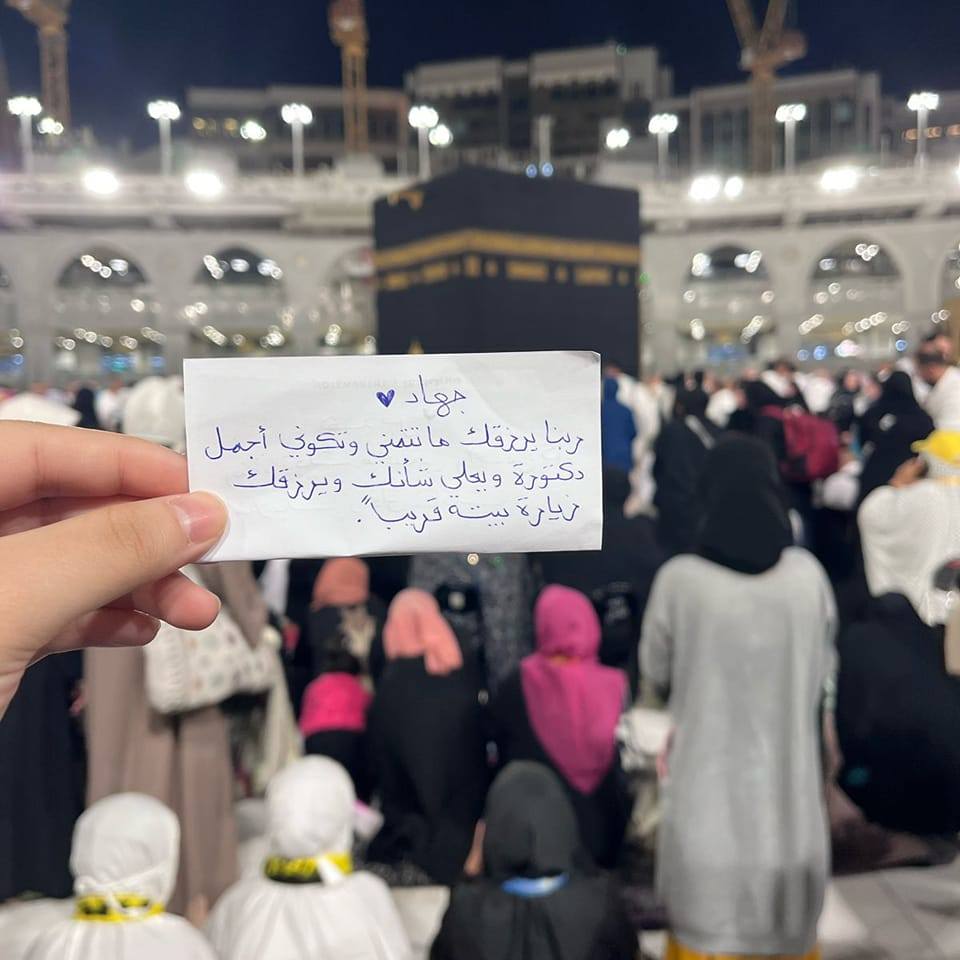 جهاد ♥
ربنا يرزقك ما تتمني وتكوني أجمل
دكتورة ويعلي شأنك ويرزقك
زيارة بيته قريباً.